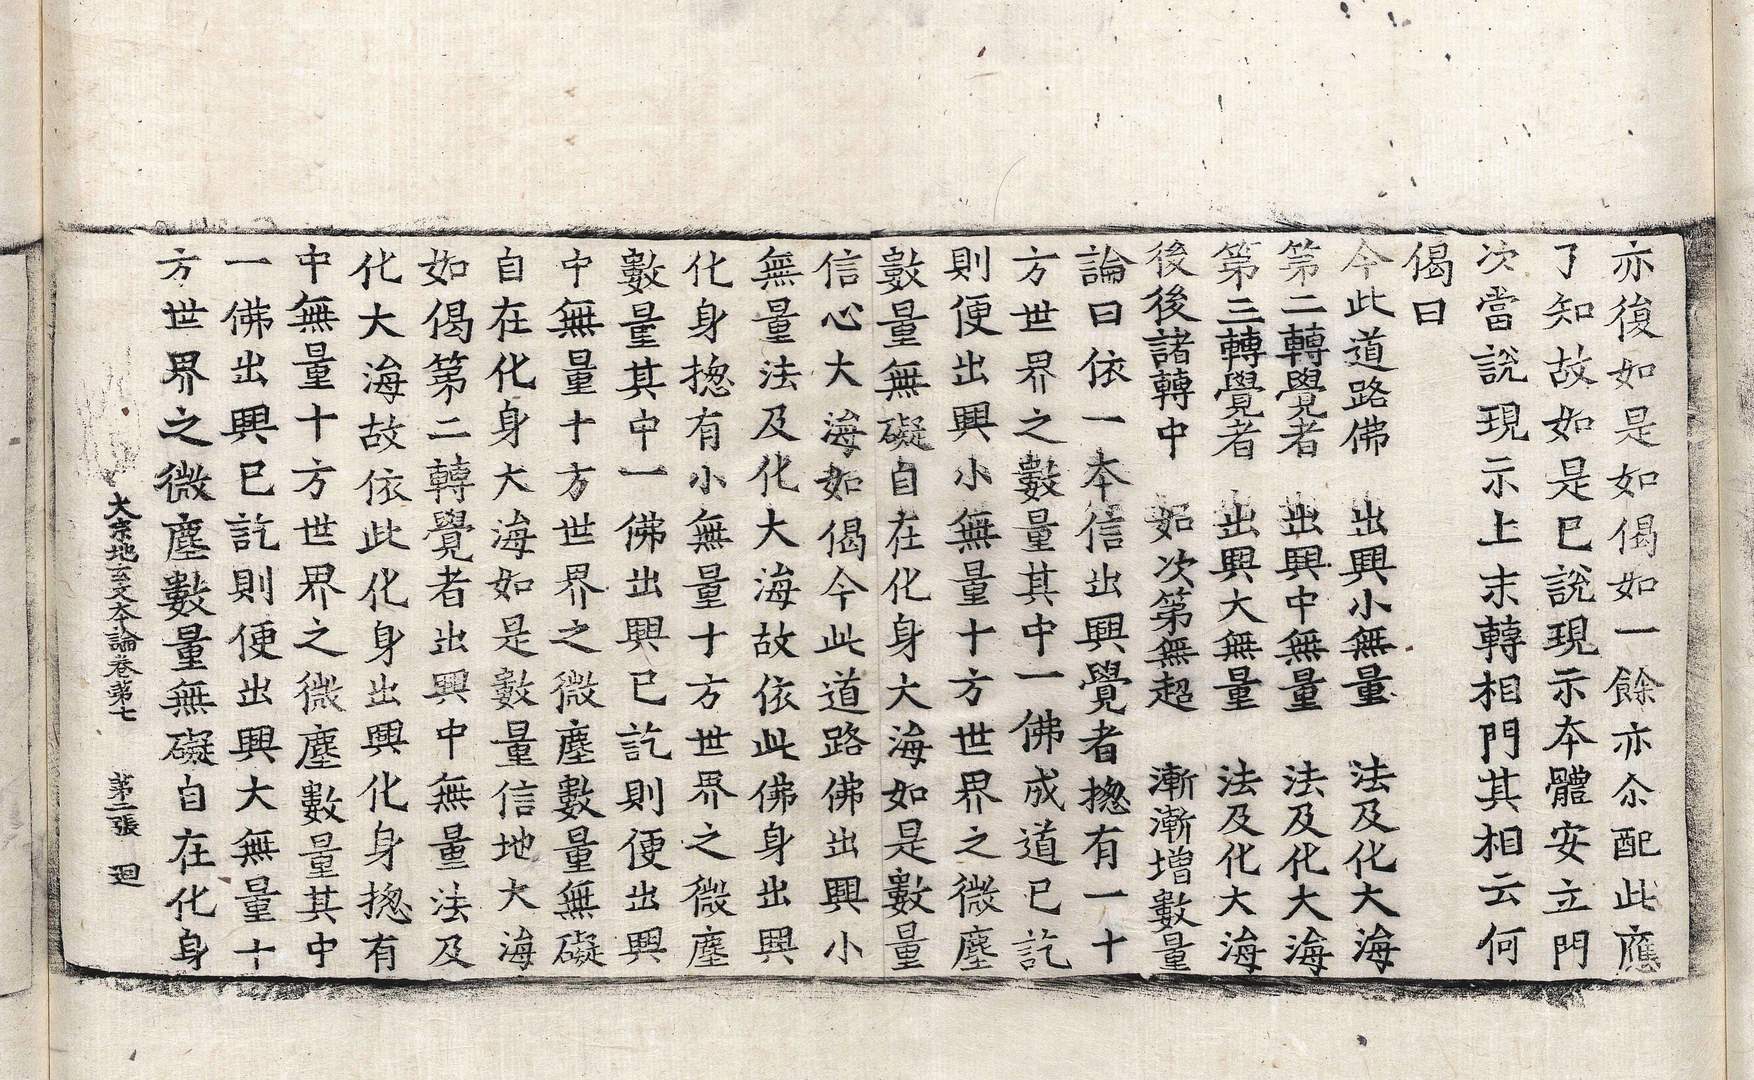 亦復如是如偈如一餘亦尒配此應
了知故如是已說現示本體安立門
次當說現示上末轉相門其相云何
偈曰
今此道路佛　出興小無量　法及化大海
第二轉覺者　出興中無量　法及化大海
第三轉覺者　出興大無量　法及化大海
後後諸轉中　如次第無超　漸漸增數量
論曰依一本信出興覺者揔有一十
方世界之數量其中一佛成道已訖
則便出興小無量十方世界之微塵
數量無礙自在化身大海如是數量
信心大海如偈今此道路佛出興小
無量法及化大海故依此佛身出興
化身揔有小無量十方世界之微塵
數量其中一佛出興已訖則便出興
中無量十方世界之微塵數量無礙
自在化身大海如是數量信地大海
如偈第二轉覺者出興中無量法及
化大海故依此化身出興化身揔有
中無量十方世界之微塵數量其中
一佛出興已訖則便出興大無量十
方世界之微塵數量無礙自在化身
大宗地玄文本論卷第七　第二張　迴